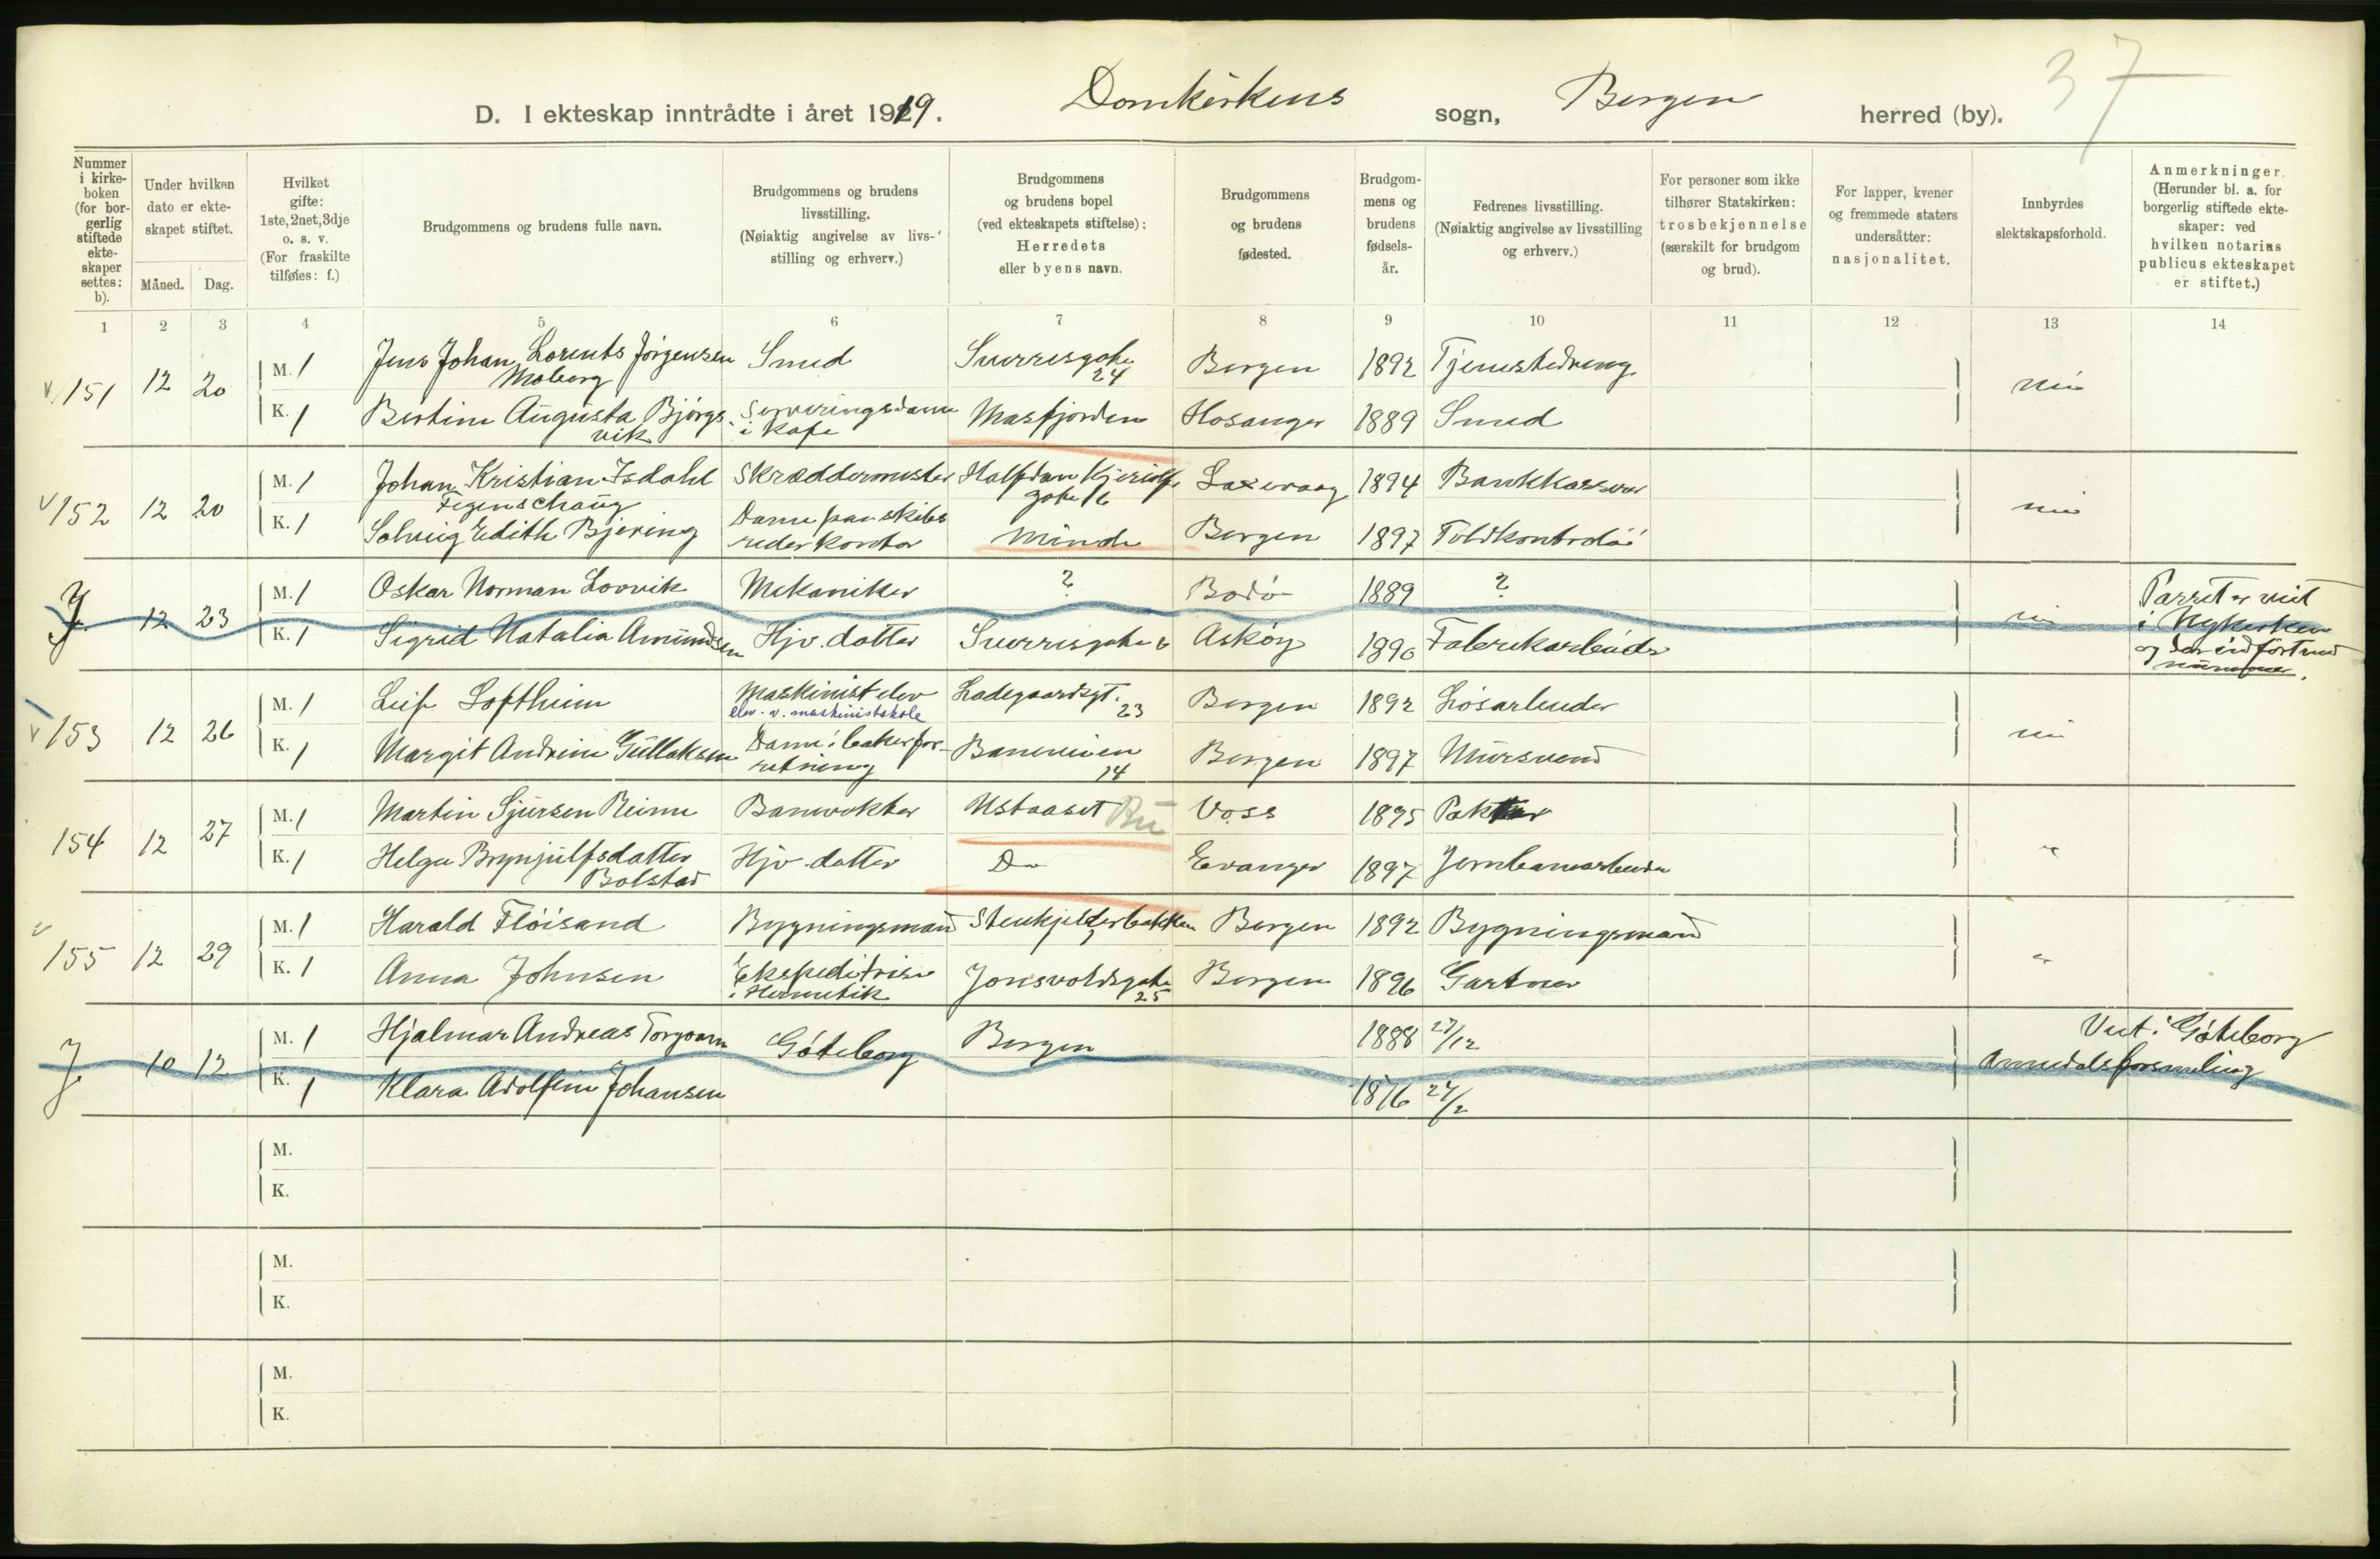 37
D. I ekteskap inntrådte i året 1919. Domkirkens sogn, Bergen herred (by).
Nummer i kirkeboken (for borgerlig stiftede ekteskaper settes: b).
Under hvilken dato er ekteskapet stiftet.
Måned. Dag.
Hvilket gifte: 1ste, 2net, 3dje o. s. v. (For fraskilte tilføies: f.)
Brudgommens og brudens fulle navn.
Brudgommens og brudens livsstilling. (Nøiaktig angivelse av livsstilling og erhverv.)
Brudgommens og brudens bopel (ved ekteskapets stiftelse): Herredets eller byens navn.
Brudgommens og brudens fødested.
Brudgommens og brudens fødselsår.
Fedrenes livsstilling. (Nøiaktig angivelse av livsstilling og erhverv.)
For personer som ikke tilhører Statskirken: trosbekjennelse (særskilt for brudgom og brud).
For lapper, kvener og fremmede staters undersåtter: nasjonalitet.
Innbyrdes slektskapsforhold.
Anmerkninger. (Herunder bl. a. for borgerlig stiftede ekteskaper: ved hvilken notarius publicus ekteskapet er stiftet.)
1 2 3 4 5 6 7 8 9 10 11 12 13 14
151 12 20 M. 1 Jens Johan Lorents Jörgensen Moberg Smed Sverresgate 24 Bergen 1892 Tjenestedreng nei
K. 1 Bertine Augusta Björgsvik Serveringsdame i Kafe Masfjorden Hosanger 1889 Smed
152 12 20 M. 1 Johan Kristian Isdahl Fegenschaug Skræddermester Halfdan Kjerulfs gate 16 Laxevaag 1894 Bankkasserer nei
K. 1 Solveig Edith Bjering Dame paa skibsrederkontor Minde Bergen 1897 Toldkontrolör
J. 12 23 M. 1 Oskar Norman Loovik Mekaniker ? Bodö 1889 ? nei Parret er viet
i Nykirken
og der indfört med
nummer.
K. 1 Sigrid Natalia Amundsen Hjv. datter Sverresgate 6 Asköy 1890 Fabrikarbeider
153 12 26 M. 1 Leif Loftheim Maskinistelev elev. v. maskinistskole Ladegaardsgt. 23 Bergen 1892 Lösarbeider nei
K. 1 Margit Andrine Gullaksen Dame i bakerforretning Baneveien 14 Bergen 1897 Mursvend
154 12 27 M. 1 Martin Sjursen Reime Banevokter Ustaaset Bu Voss 1895 Pakker "
K. 1 Helga Brynjulfsdatter Bolstad Hjv. datter Do Evanger 1897 Jernbanearbeider
155 12 29 M. 1 Harald Flöisand Bygningsmand Stenkjelderbakken Bergen 1892 Bygningsmand "
K. 1 Anna Johnsen Ekspeditrise i Hermetik Jonsvoldsgate 25 Bergen 1896 Gartner
J. 10 12 M. 1 Hjalmar Andreas Göteborg Bergen 1888 27/12 Viet i Göteborg
K. 1 Klara Adolfine Johansen 1876 27/2
M.
K.
M.
K.
M.
K.